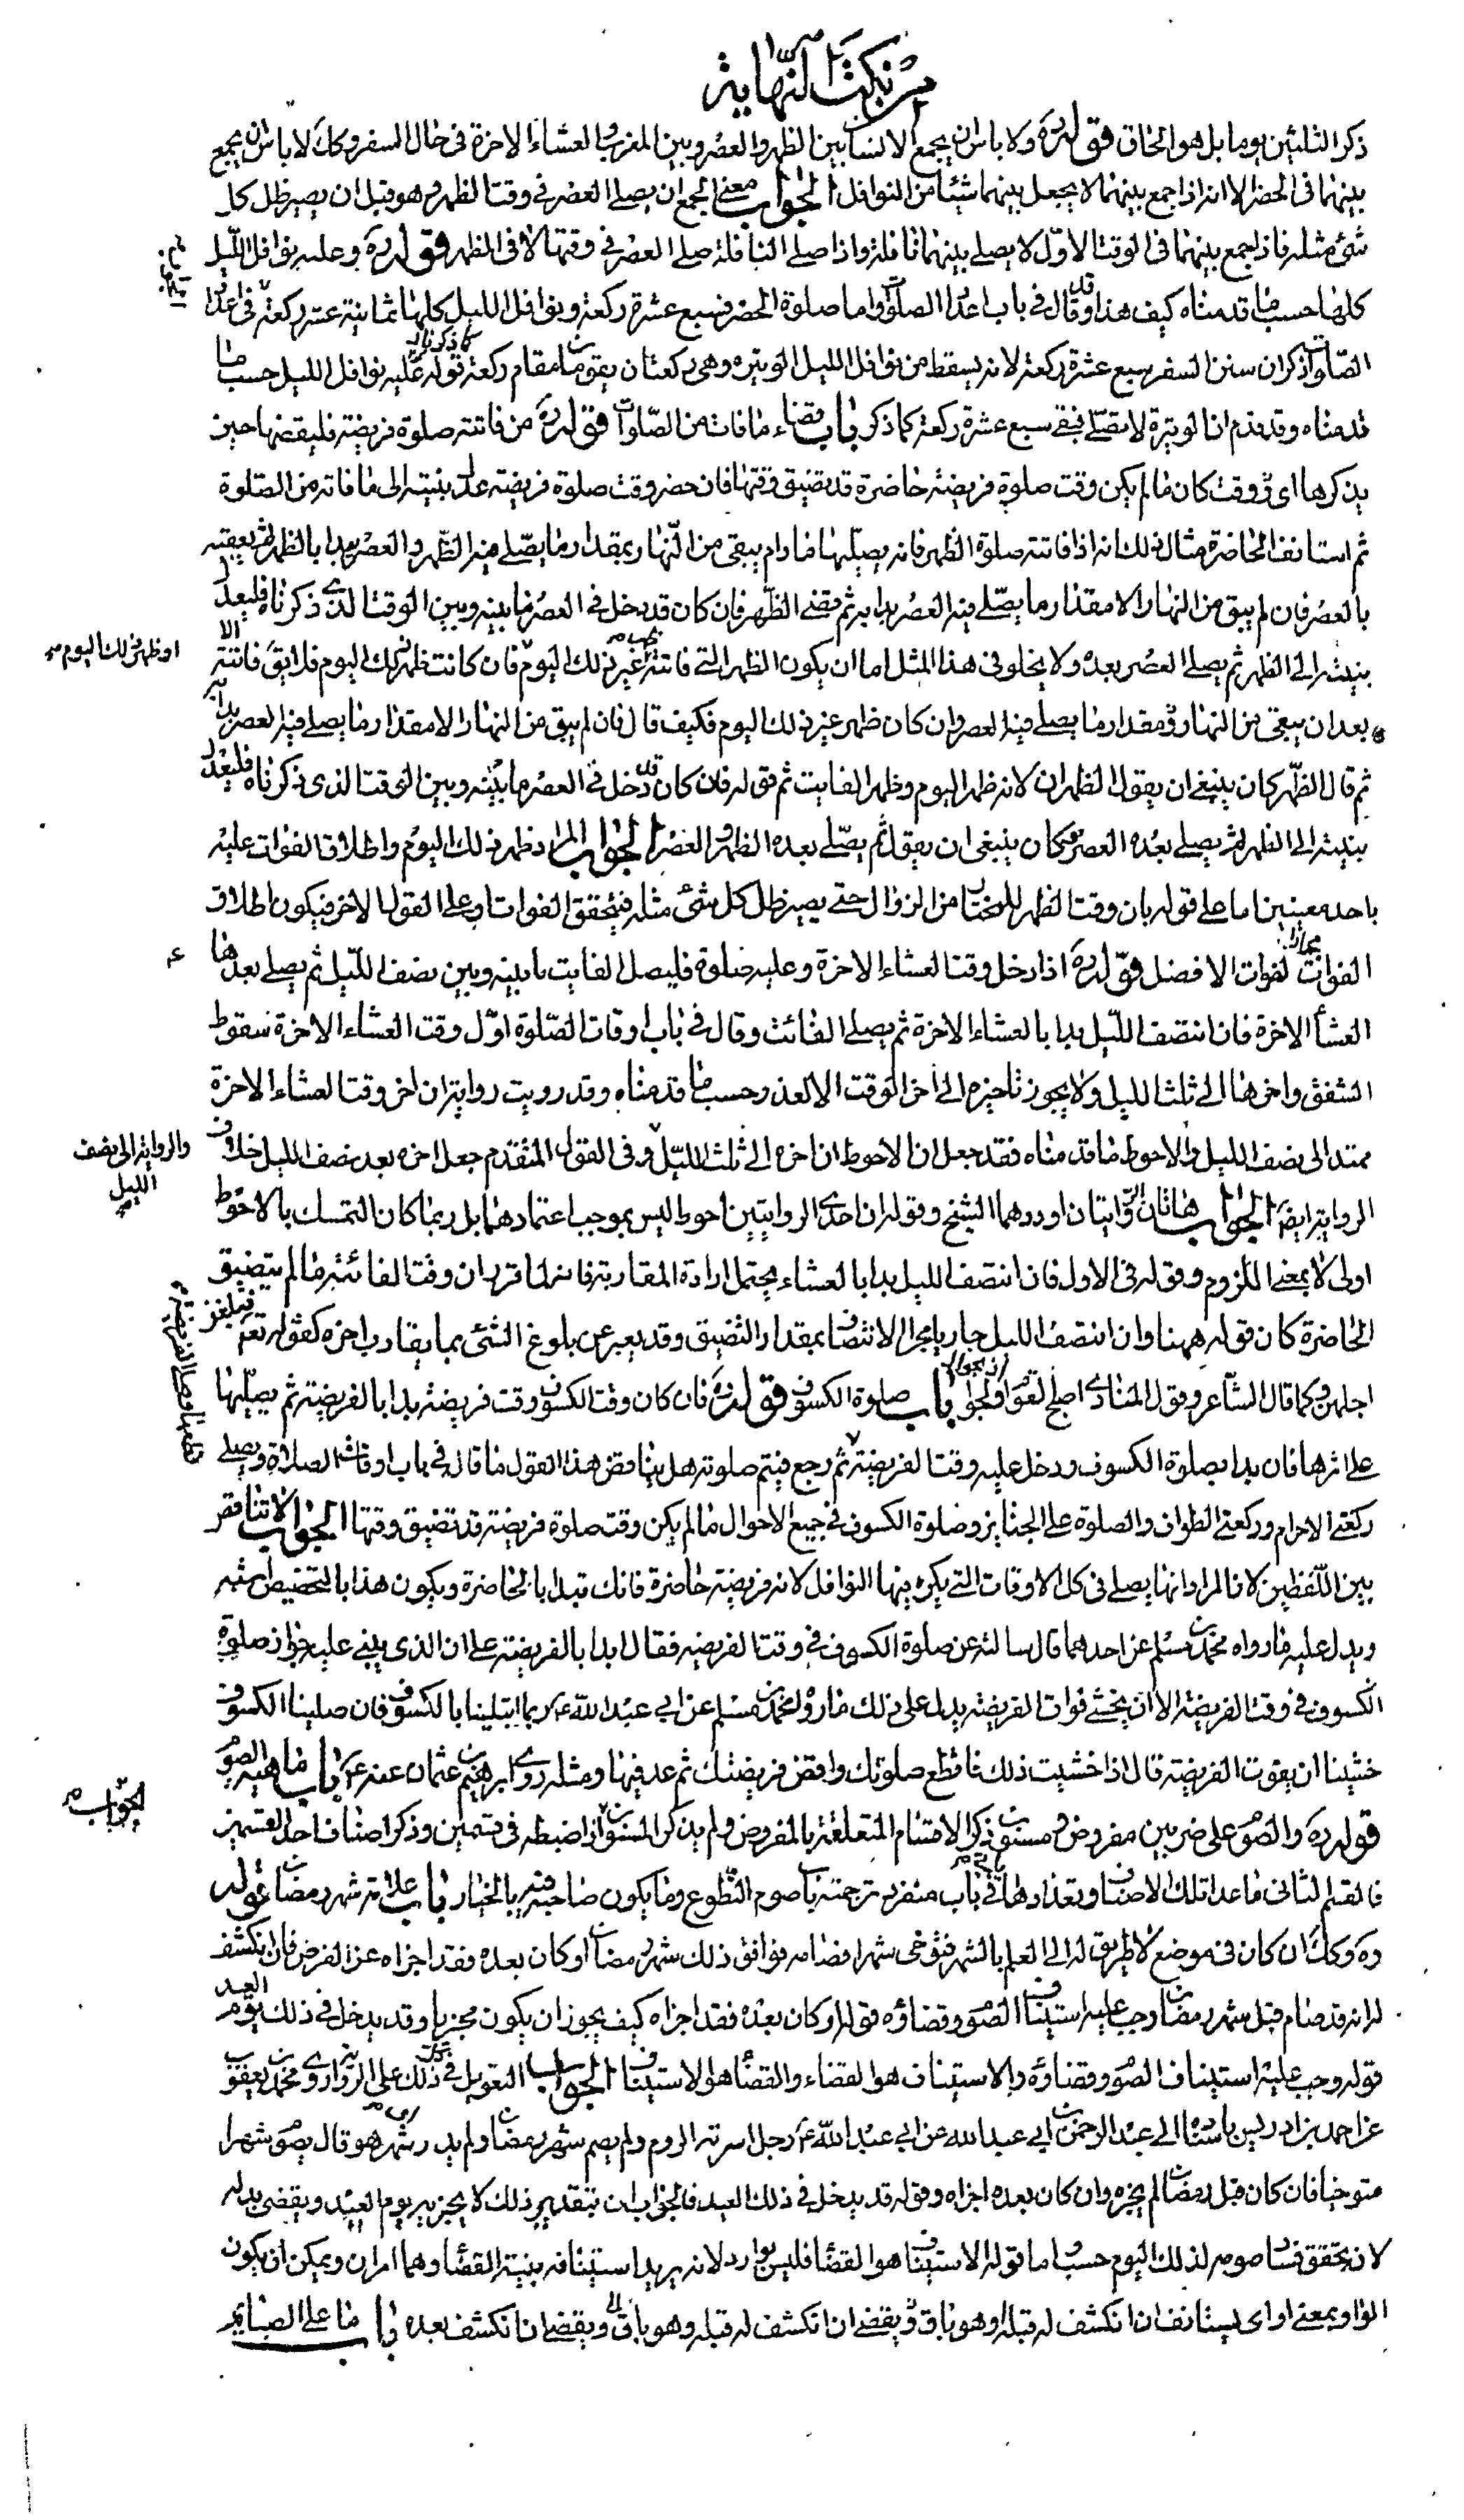 من نكت النهاية
ذكر الثلثين يوما بل هو الخاق قوله ره ولا باس ان يجمع الانسان بين الظهر والعصر وبين المغرب والعشاء الاخرة فى حال السفر وكك لا باس ان يجمع
بينهما فى الحضر الا انه اذا جمع بينهما لا يجعل بينهما شيئا من النوافل الجواب معنى الجمع ان يصلى العصر فى وقت الظهر وهو قبل ان يصير ظل كل
شئ مثله فاذا جمع بينهما فى الوقت الاول لا يصلى بينهما نافلة واذا صلى النافلة صلى العصر فى وقتها لا فى الظهر قوله ره وعليه نوافل الليل
كلها حسب ما قدمناه كيف هذا وقد قال فى باب اعداد الصلوة واما صلوة الحضر فسبع عشرة ركعة ونوافل الليل كلها ثمانية عشر ركعة فى اعداد
الصلوة وذكر ان سنن السفر سبع عشرة ركعة لانه يسقط من نوافل الليل الوتيره وهى ركعتان يقومان مقام ركعة كما ذكرناه قوله عليه نوافل الليل حسب ما
قدمناه وقد قدم ان الوتيرة لا تصلى فبقى سبع عشرة ركعة كما ذكر باب قضاء ما فات من الصلوات قوله ره من فاتته صلوة فريضة فليقضها حين
يذكرها اى وقت كان ما لم يكن وقت صلوة فريضة حاضرة قد تضيق وقتها فان حضر وقت صلوة فريضة عدل بنيته الى ما فاته من الصلوة
ثم استانف الحاضرة مثال ذلك انه اذا فاتته صلوة الظهر فانه يصليها ما دام يبقى من النهار بمقدار ما يصلى فيه الظهر والعصر يبدا بالظهر ثم يعقبه
بالعصر فان لم يبق من النهار الا مقدار ما يصلى فيه العصر بدا به ثم يقضى الظهر فان كان قد دخل فى العصر ما بينه وبين الوقت الذى ذكرناه فليعدل
بنيته الى الظهر ثم يصلى العصر بعده ولا يخلو فى هذا المثل اما ان يكون الظهر التى فاتته ظهر غير ذلك اليوم او ظهر ذلك اليوم فان كانت ظهر ذلك اليوم فلا يق فاتته الا
بعد ان يبقى من النهار مقدار ما يصلى فيه العصر وان كان ظهر غير ذلك اليوم فكيف قال فان لم يبق من النهار الا مقدار ما يصلى فيه العصر بدا به
ثم قال الظهر كان ينبغى ان يقول الظهران لانه ظهر اليوم وظهر الفايت ثم قوله فان كان قد دخل فى العصر ما بينه وبين الوقت الذى ذكرناه فليعدل
بنيته الى الظهر ثم يصلى بعده العصر فكان ينبغى ان يقول ثم يصلى بعده الظهر والعصر الجواب المراد ظهر ذلك اليوم واطلاق الفوات عليه
باحد معنيين اما على قوله بان وقت الظهر للمختار من الزوال حتى يصير ظل كل شئ مثله فيتحقق الفوات او على القول الاخر فيكون اطلاق
الفوات مجازا لفوات الافضل قوله ره اذا دخل وقت العشاء الاخرة وعليه صلوة فليصل الفايت ما بينه وبين نصف الليل ثم يصلى بعدها
العشاء الاخرة فان انتصف الليل بدا بالعشاء الاخرة ثم يصلى الفائت وقال فى باب اوقات الصلوة اول وقت العشاء الاخرة سقوط
الشفق واخرها الى ثلث الليل ولا يجوز تاخيره الى اخر الوقت الا لعذر وحسب ما قدمناه وقد رويت رواية ان اخر وقت العشاء الاخرة
ممتد الى نصف الليل والاحوط ما قدمناه فقد جعل ان الاحوط ان اخره الى ثلث الليل والرواية الى نصف الليل وفى القول المتقدم جعل اخره بعد نصف الليل خلاف
الرواية ايضا الجواب هاتان روايتان اوردهما الشيخ وقوله ان احدى الروايتين احوط ليس بموجب اعتمادهما بل ربما كان التمسك بالاحوط
اولى لا بمعنى اللزوم وقوله فى الاول فان انتصف الليل بدا بالعشاء يحتمل ارادة المقاربة فانه لما قرر ان وقت الفائتة ما لم يتضيق
الحاضرة كان قوله ههنا وان انتصف الليل جاريا مجرى الانتصاف بمقدار التضيق وقد يعبر عن بلوغ الشئ بما يقارب اخره كقوله تع فبلغن
اجلهن وكما قال الشاعر وقول المنادى اصلح القوم باب صلوة الكسوف قوله ره فان كان وقت الكسوف وقت فريضة بدا بالفريضة ثم يصليها
على اثرها فان بدا بصلوة الكسوف ودخل عليه وقت الفريضة ثم رجع فيتم صلوته هل يناقض هذا القول ما قاله فى باب اوقات الصلاة ويصلى
ركعتى الاحرام وركعتى الطواف والصلوة على الجنايز وصلوة الكسوف فى جميع الاحوال ما لم يكن وقت صلوة فريضة قد تضيق وقتها الجواب لا تناقض
بين اللفظين لان المراد انها يصلى فى كل الاوقات التى يكره فيها النوافل لانه فريضة حاضرة فانك تبدا بالحاضرة ويكون هذا بالتخصيص اشبه
ويدل عليه ما رواه محمد بن مسلم عن احدهما قال سالته عن صلوة الكسوف فى وقت الفريضة فقال ابدا بالفريضة على ان الذى يبنى عليه جواز صلوة
الكسوف فى وقت الفريضة الا ان يخشى فوات الفريضة يدل على ذلك ما رواه محمد بن مسلم عن ابى عبد الله ع ربما ابتلينا بالكسوف فان صلينا الكسوف
خشينا ان يفوت الفريضة قال اذا خشيت ذلك فاقطع صلوتك واقض فريضتك ثم عد فيها ومثله روى ابرهيم بن عثمان عنه ع باب ماهية الصوم
قوله ره والصوم على ضربين مفروض ومسنون ذكر الاقسام المتعلقة بالمفروض ولم يذكر المسنون الجواب اذا ضبطه فى قسمين وذكر اصناف احد القسمين
فالقسم الثانى ما عدا تلك الاصناف وتعدادها ياتى فى باب منفرد ترجمته باب صوم التطوع وما يكون صاحبه فيه بالخيار باب علامة شهر رمضان قوله
ره وكك ان كان فى موضع لا طريق له الى العلم بالشهر فتوخى شهرا فصامه فوافق ذلك شهر رمضان او كان بعده فقد اجزاه عن الفرض فان انكشف
له انه قد صام قبل شهر رمضان وجب عليه استيناف الصوم وقضاؤه قوله او كان بعده فقد اجزاه كيف يجوز ان يكون مجزيا وقد يدخل فى ذلك يوم العيد
قوله وجب عليه استيناف الصوم وقضاؤه والاستيناف هو القضاء والقضاء هو الاستيناف الجواب التعويل فى ذلك على ما رواه محمد بن يعقوب
عن احمد بن ادريس باسناده الى عبد الرحمن بن ابى عبد الله عن ابى عبد الله ع رجل اسرته الروم ولم يصم شهر رمضان ولم يدر اى شهر هو قال يصوم شهرا
متوخيا فان كان قبل رمضان لم يجزه وان كان بعده اجزاه وقوله قد يدخل فى ذلك العيد فالجواب ان بتقدير ذلك لا يجزيه يوم العيد ويقضى بدله
لانه تحقق فساد صومه لذلك اليوم حسب واما قوله الاستيناف هو القضاء فليس بوارد لانه يريد استينافه بنية القضاء وهما امران ويمكن ان يكون
الواو بمعنى او اى يستانف ان انكشف له قبله وهو باق ويقضى ان انكشف له قبله وهو باق ويقضى ان انكشف بعده باب ما على الصائم